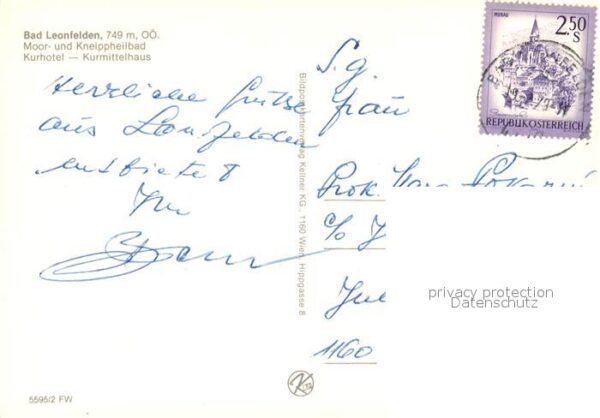 Bad Leonfelden, 749 m, OÖ.
Moor- und Kneippheilbad
Kurhotel — Kurmittelhaus
Herrliche Grüße
aus Leonfelden
entbietet
Ihr
Bildpostkartenverlag Kellner KG., 1160 Wien, Hippgasse 8
S.g.
Frau
Prok.
c/o J
1160
MURAU
2.50
S
REPUBLIK ÖSTERREICH
privacy protection
Datenschutz
5595/2 FW